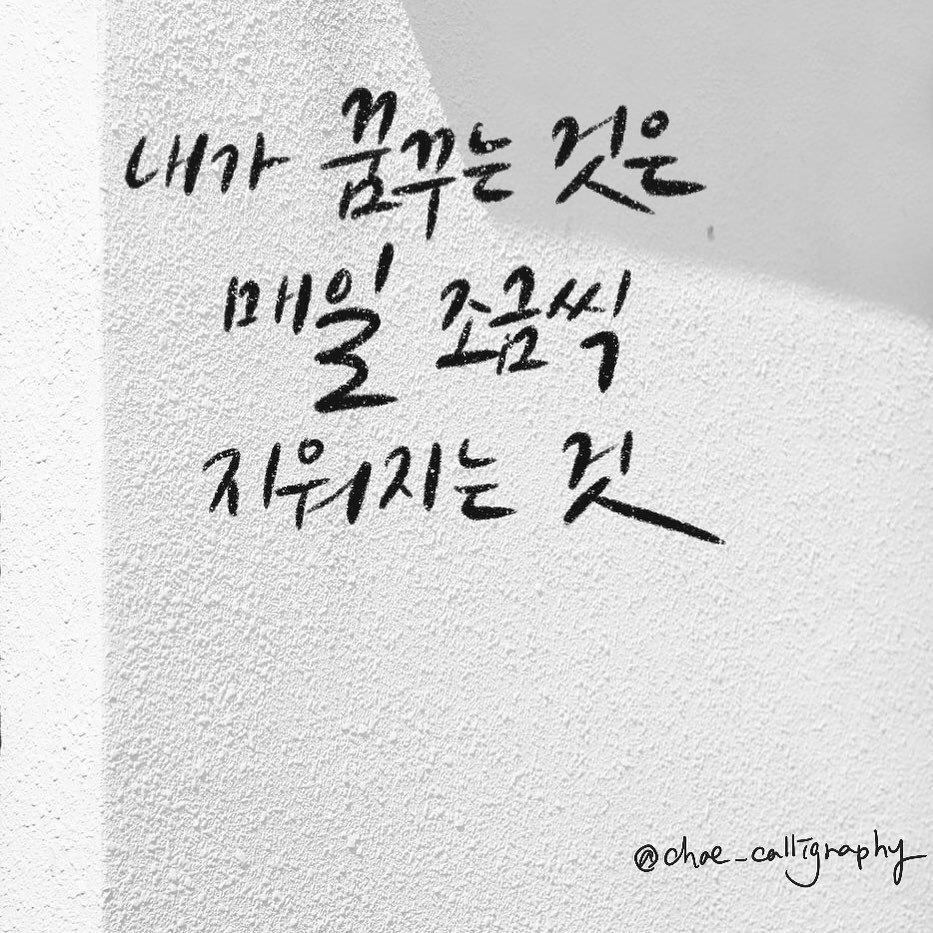 내가 꿈꾸는 것은
매일 조금씩
지워지는 것
@choe_calligraphy